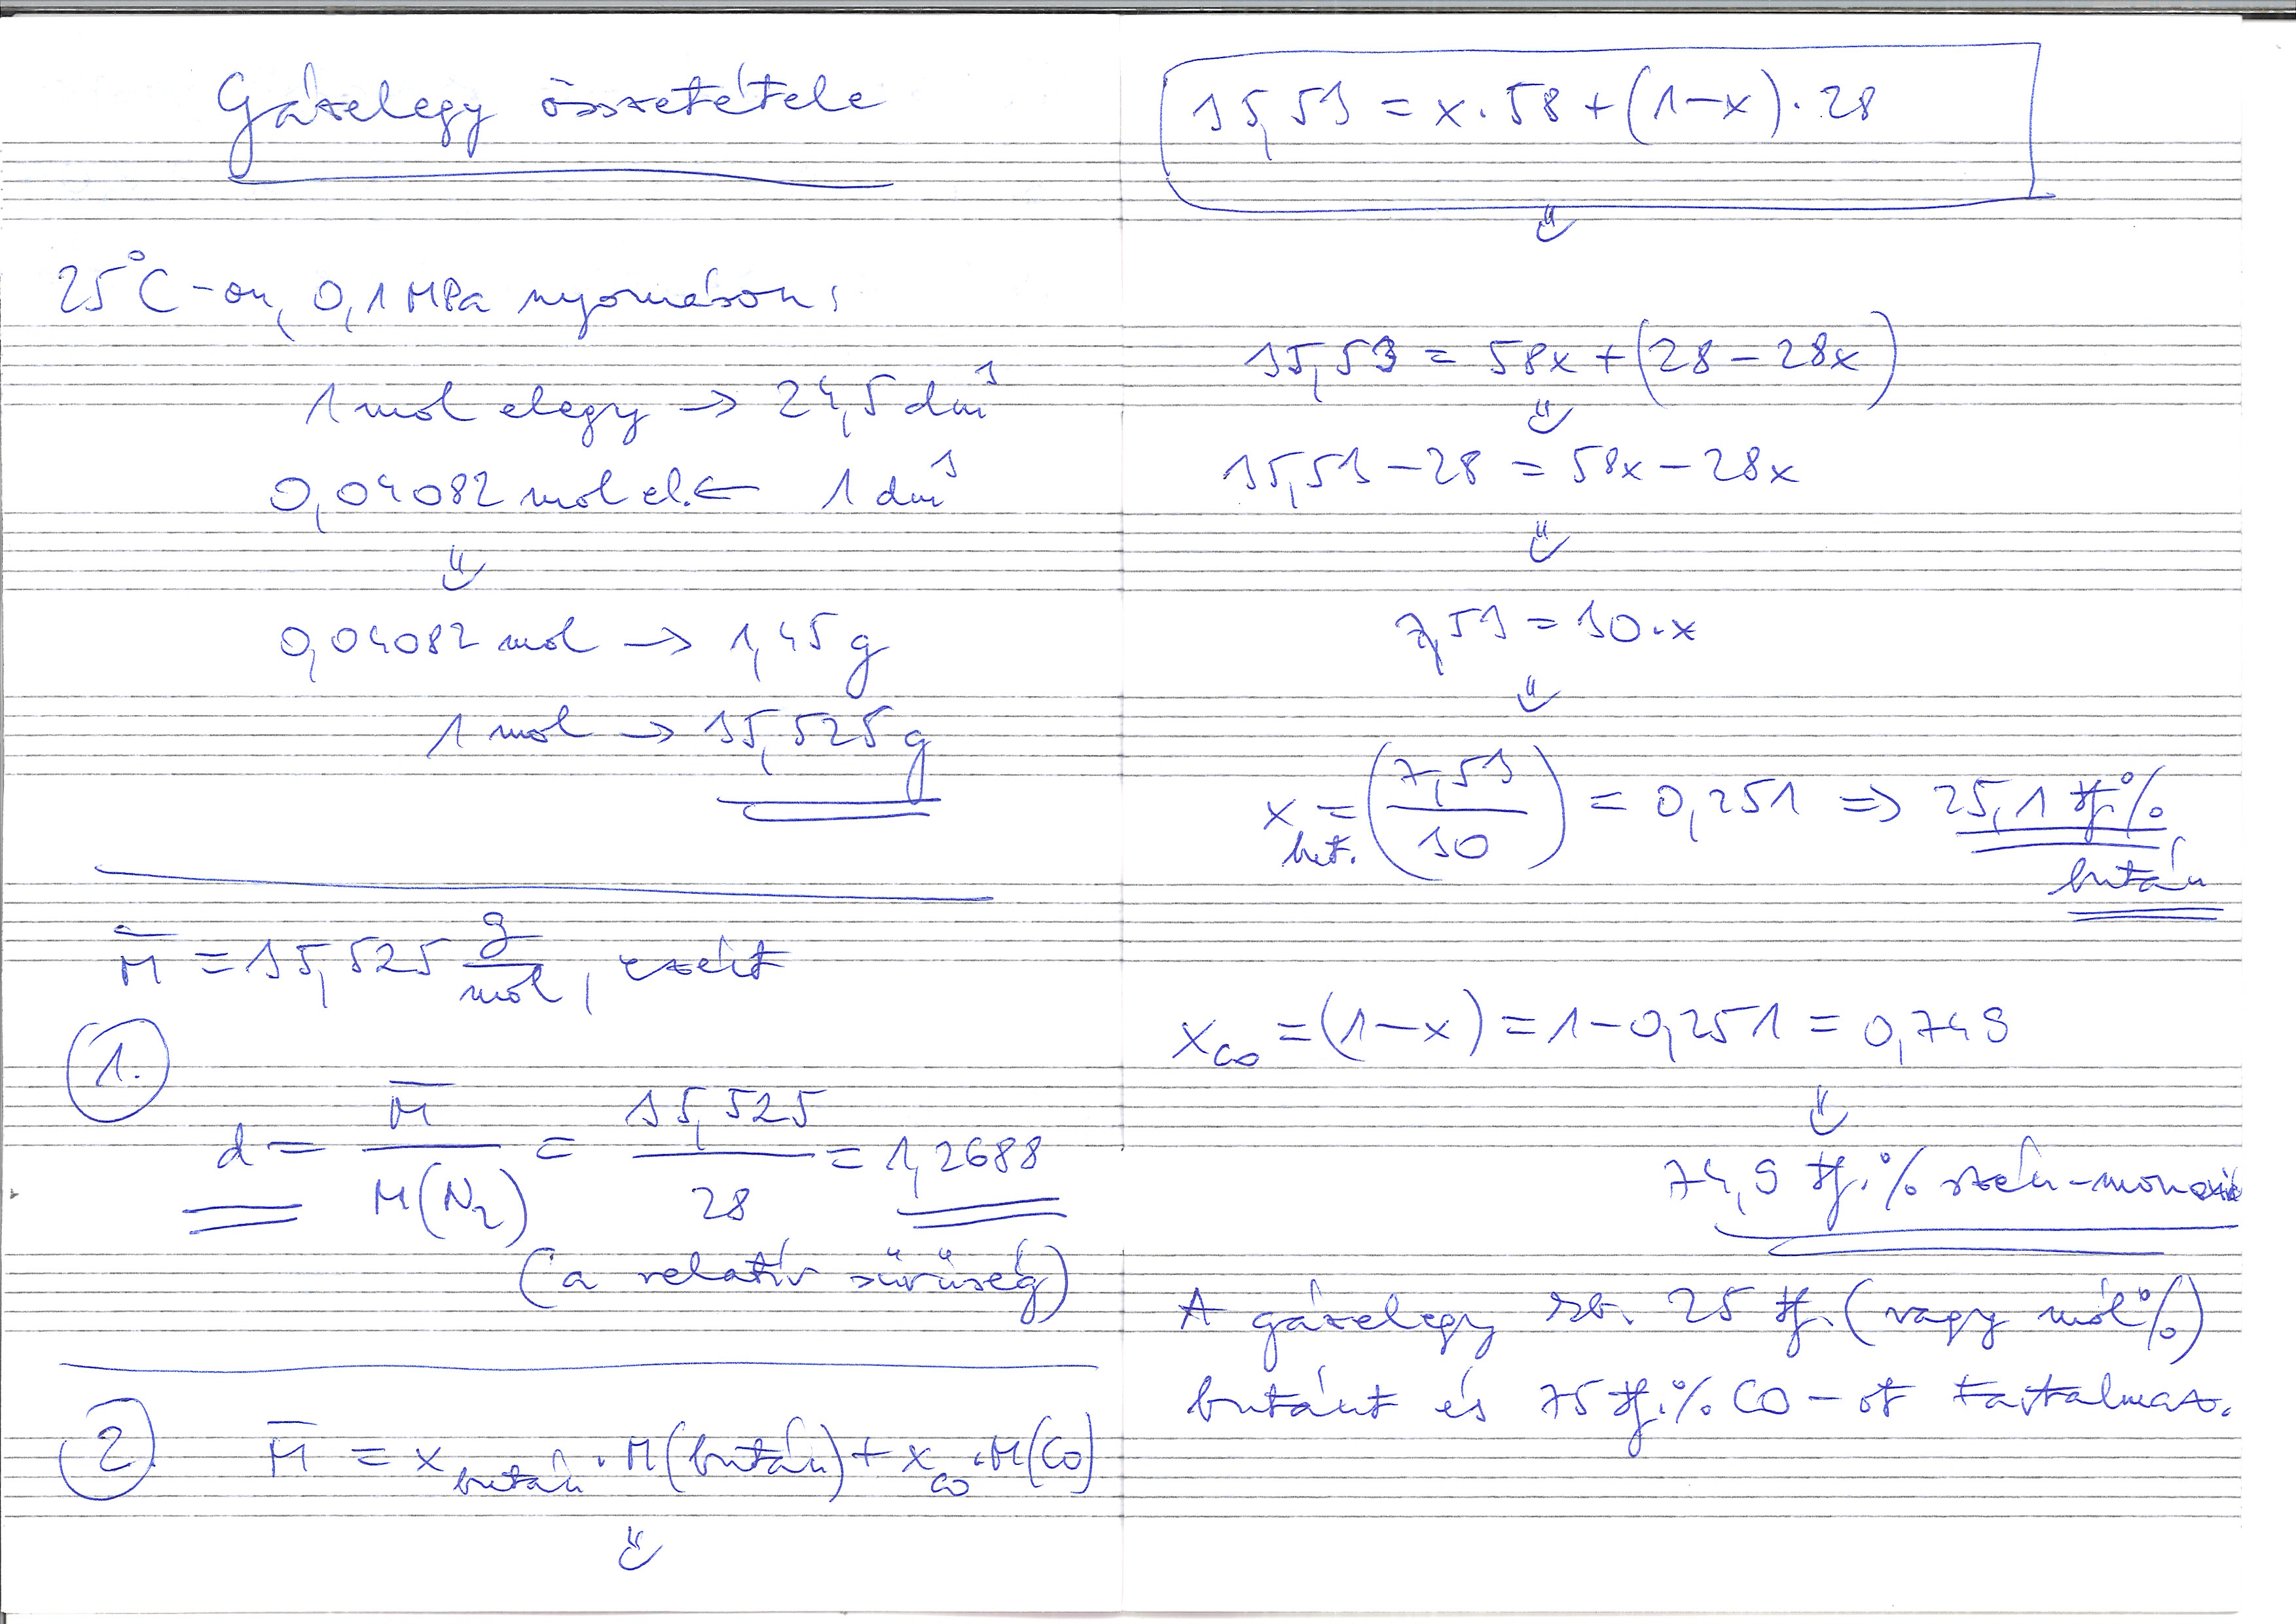 Gázelegy összetétele
25°C-on, 0,1 MPa nyomáson:
1 mol elegy → 24,5 dm³
0,04082 mol el. ← 1 dm³
⇓
0,04082 mol → 1,45 g
1 mol → 35,525 g
M̄ = 35,525 g/mol, ezért
1.
d = M̄ / M(N₂) = 35,525 / 28 = 1,2688
(a relatív sűrűség)
2. M̄ = x bután · M(bután) + x CO · M(CO)
⇓
35,53 = x · 58 + (1-x) · 28
⇓
35,53 = 58x + (28 - 28x)
⇓
35,53 - 28 = 58x - 28x
⇓
7,53 = 30 · x
⇓
x but. = (7,53 / 30) = 0,251 ⇒ 25,1 tf.%
bután
x CO = (1-x) = 1 - 0,251 = 0,749
⇓
74,9 tf.% szén-monoxid
A gázelegy kb. 25 tf. (vagy mól%)
butánt és 75 tf.% CO-ot tartalmaz.